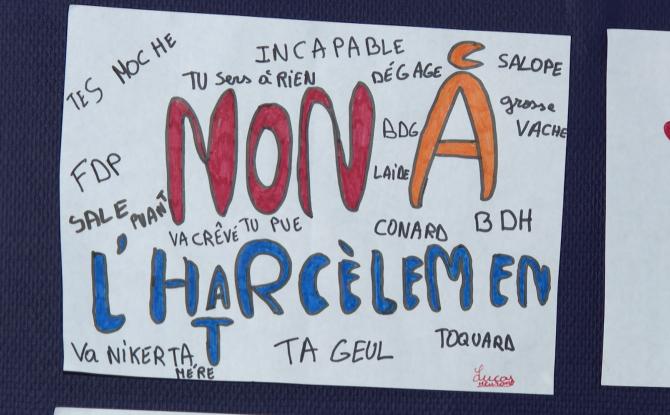 TES MOCHE
INCAPABLE
SALOPE
TU Sers à RiEN
DÉGAGE
grosse
VACHE
NON À
BDG
LAIDE
FDP
SALE PUANT
VA CRÊVÉ
TU PUE
CONARD
BDH
L'HARCÈLEMEN
T
Va NiKERTA
MÉRE
TA GEUL
TOQUARD
Lucas